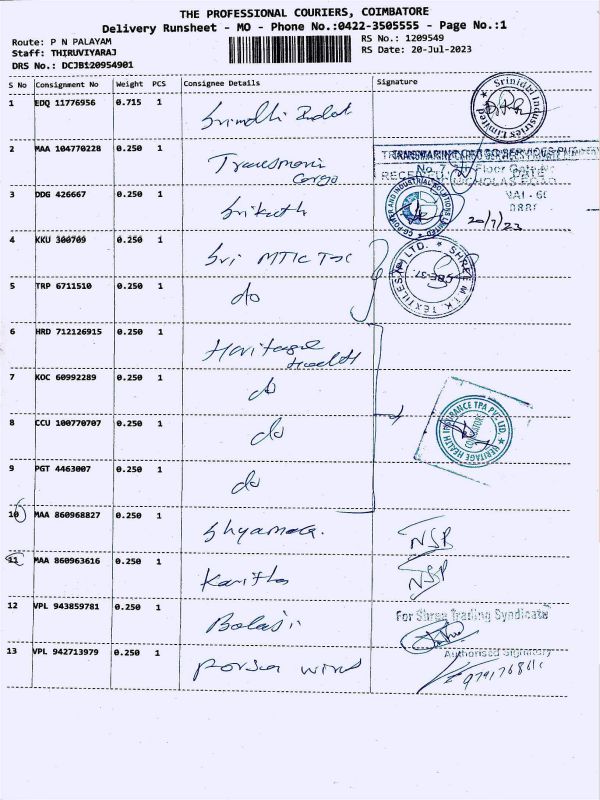 THE PROFESSIONAL COURIERS, COIMBATORE
Delivery Runsheet - MO - Phone No.:0422-3505555 - Page No.:1
Route: P N PALAYAM
RS No.: 1209549
Staff: THIRUVIYARAJ
RS Date: 20-Jul-2023
DRS No.: DCJB120954901
S No Consignment No Weight PCS Consignee Details Signature
1 EDQ 11776956 0.715 1
Srinidhi Industries Limited
2 MAA 104770228 0.250 1 Cargo
3 DDG 426667 0.250 1 Srikath
CG POWER AND INDUSTRIAL SOLUTIONS LIMITED
20/7/23
4 KKU 300709 0.250 1 Sri MTK Tex
SHREE M.T.K. TEXTILES (P) LTD.
CBE-37.
5 TRP 6711510 0.250 1 do
6 HRD 712126915 0.250 1 Heritage Health
7 KOC 60992289 0.250 1 do
8 CCU 100770707 0.250 1 do
HERITAGE HEALTH INSURANCE TPA PVT. LTD.
COIMBATORE
9 PGT 4463007 0.250 1 do
10 MAA 860968827 0.250 1 Shyamala. NSP
11 MAA 860963616 0.250 1 Kavitha NSP
12 VPL 943859781 0.250 1 Balaji
For Shree Trading Syndicate
Authorised Signatory
13 VPL 942713979 0.250 1 wind